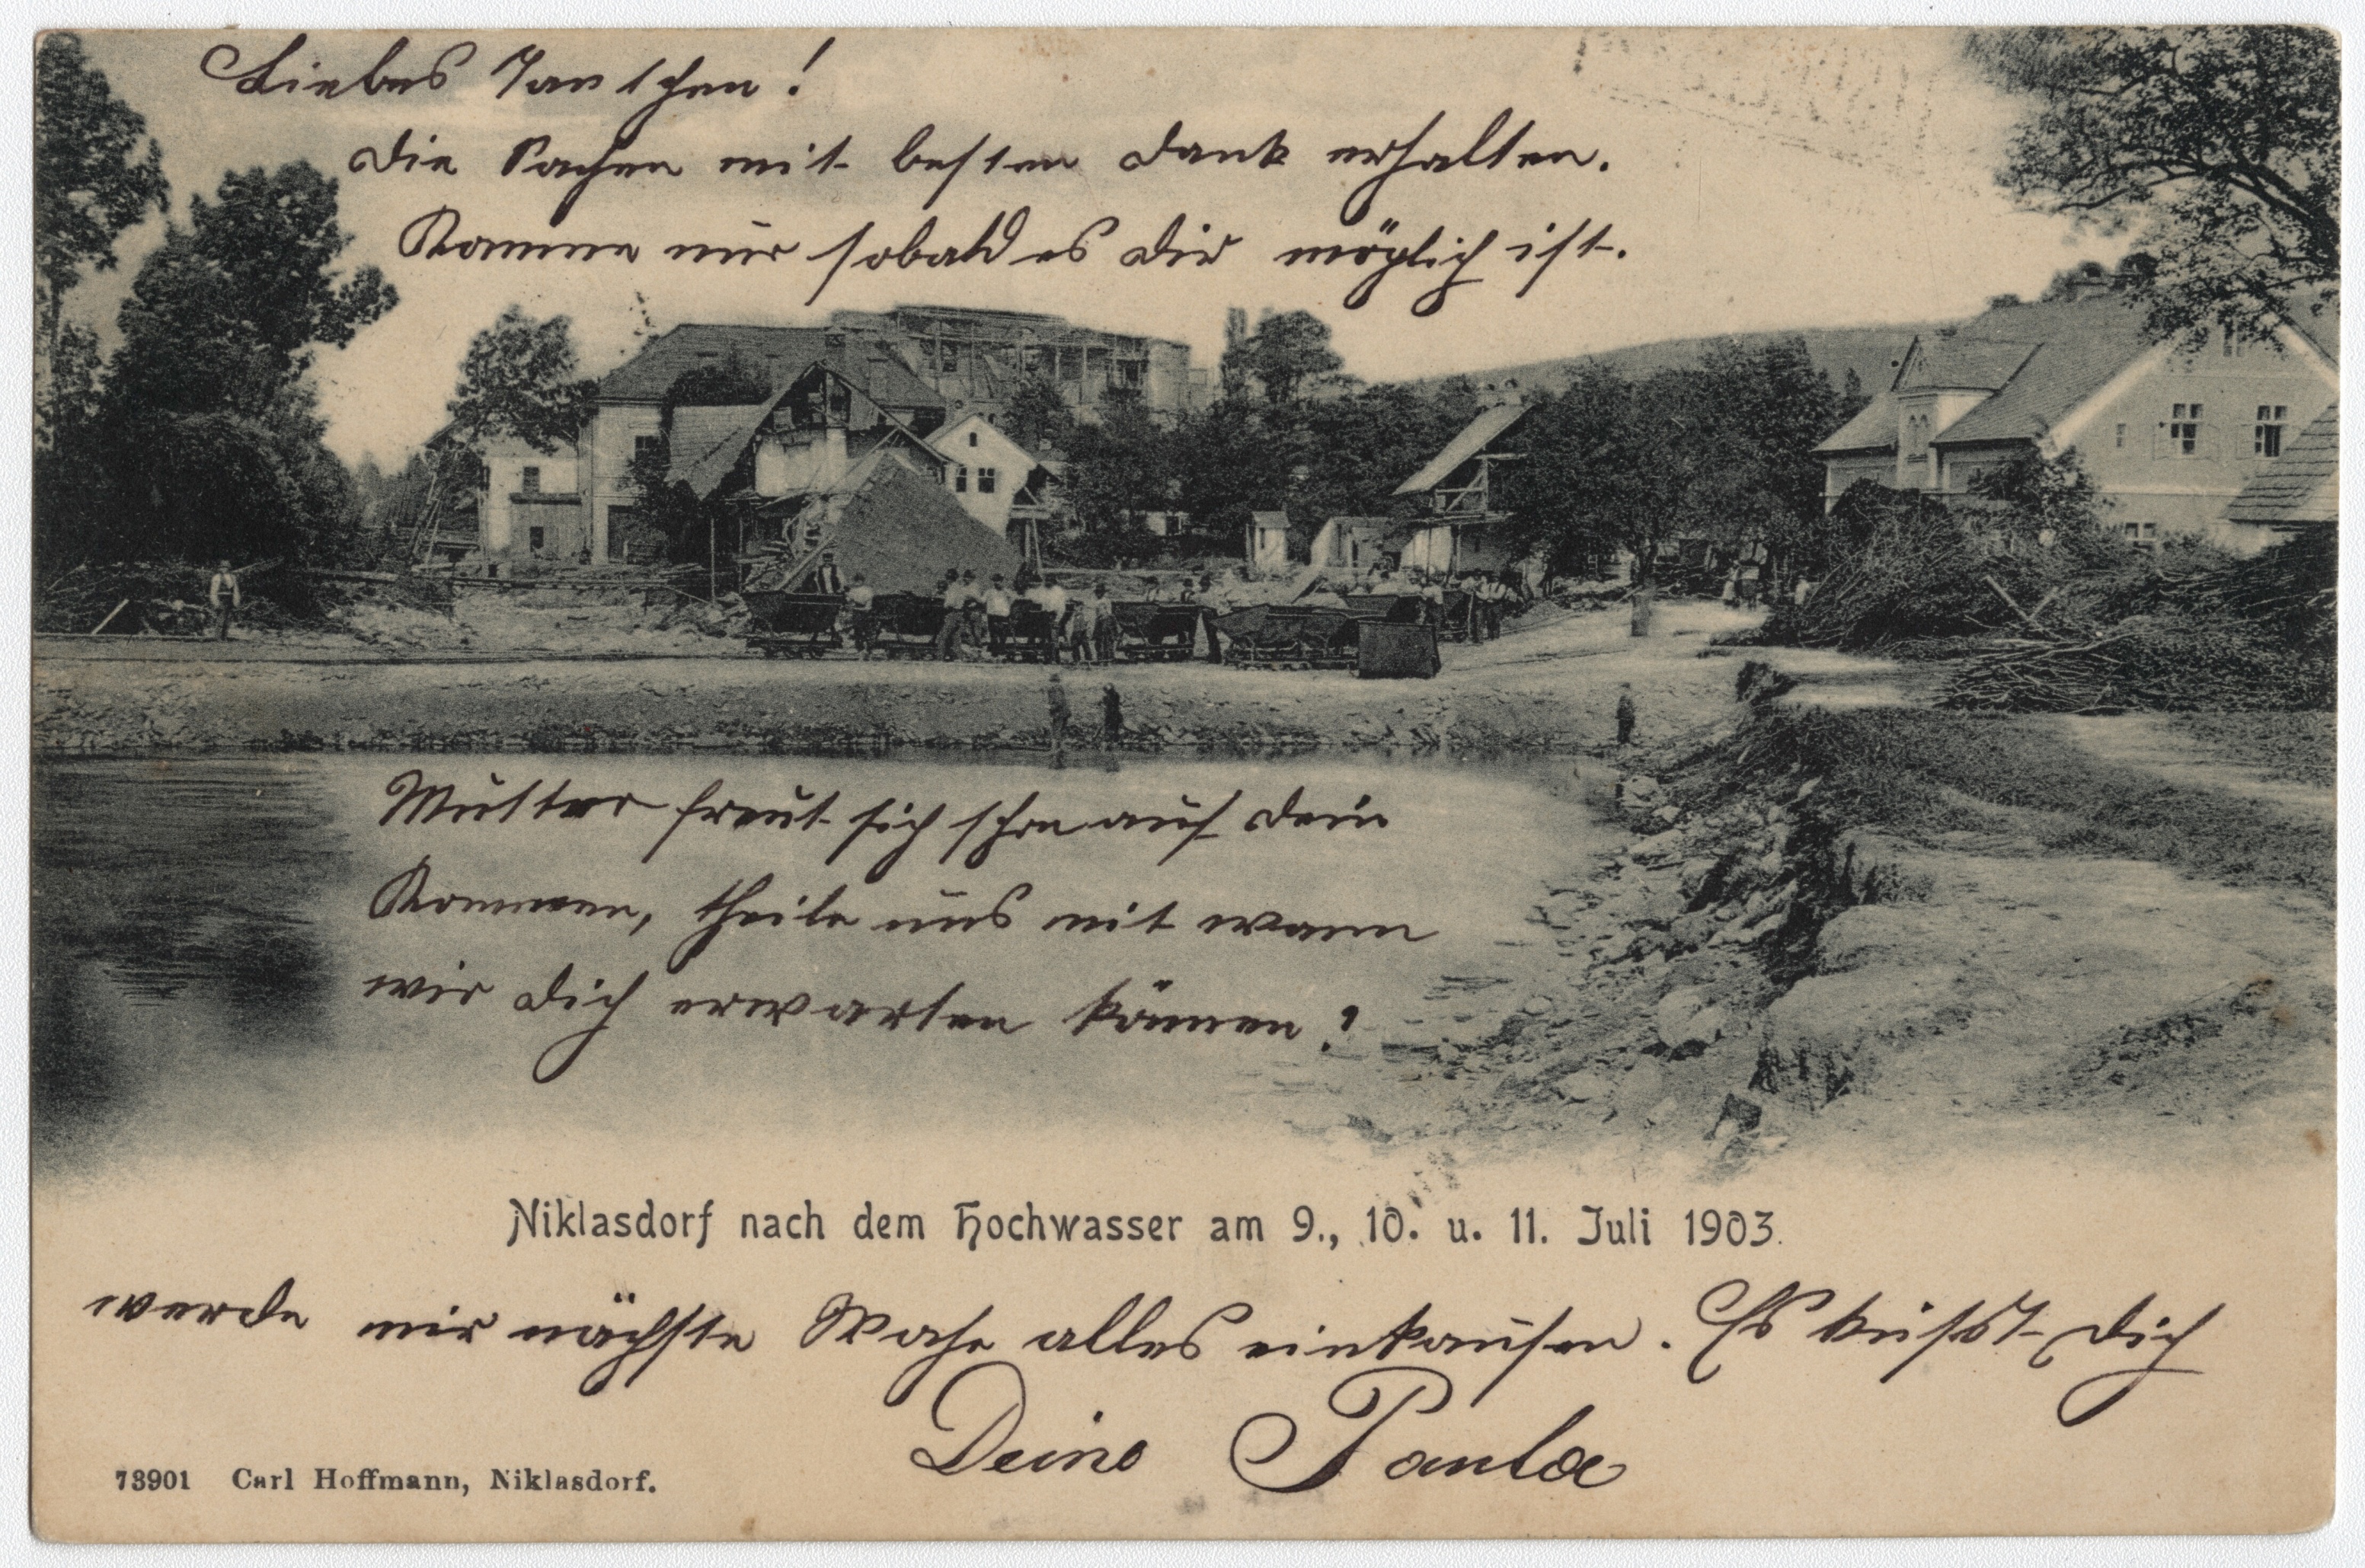 Liebes Tantchen!
die Sachen mit besten Dank erhalten.
Komme nur sobald es dir möglich ist.
Mutter freut sich schon auf dein
Kommen, theile uns mit wann
wir dich erwarten können?
Niklasdorf nach dem Hochwasser am 9., 10. u. 11. Juli 1903.
werde mir nächste Woche alles einkaufen. Es küsst dich
Deine Paula
73901 Carl Hoffmann, Niklasdorf.